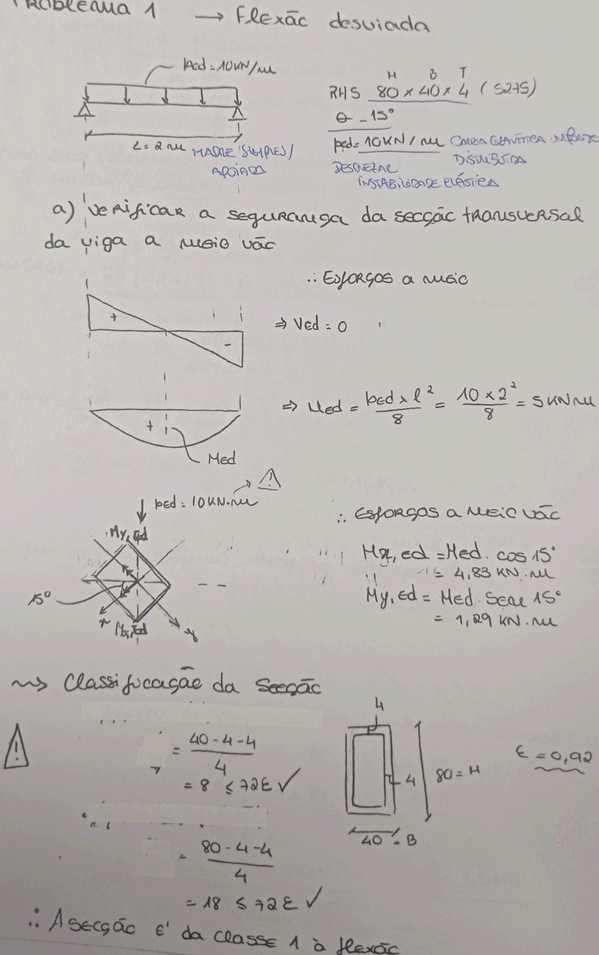 PROBLEMA 1 → Flexão desviada
ped = 10KN/m
L = 2m MADRE SIMPLES/
APOIADA
H B T
RHS 80 × 40 × 4 (S275)
θ - 15°
ped = 10KN/m CARGA GRAVÍTICA
DESPREZAR
INSTABILIDADE ELÁSTICA
a) Verificar a segurança da secção transversal
da viga a meio vão
∴ Esforços a meio
+
-
⇒ Ved = 0
+
⇒ Med = ped × l² / 8 = 10 × 2² / 8 = 5 KN m
Med
ped = 10KN.m → ⚠
My,Ed
15°
z
y
∴ Esforços a meio vão
Mx,ed = Med. cos 15°
= 4,83 KN.m
My,ed = Med sen 15°
= 1,29 KN.m
~→ Classificação da secção
= 40-4-4 / 4
= 8 ≤ 72ε ✓
4
4
80 = H
40 = B
ε = 0,92
= 80-4-4 / 4
= 18 ≤ 72ε ✓
∴ A secção é da classe 1 à flexão